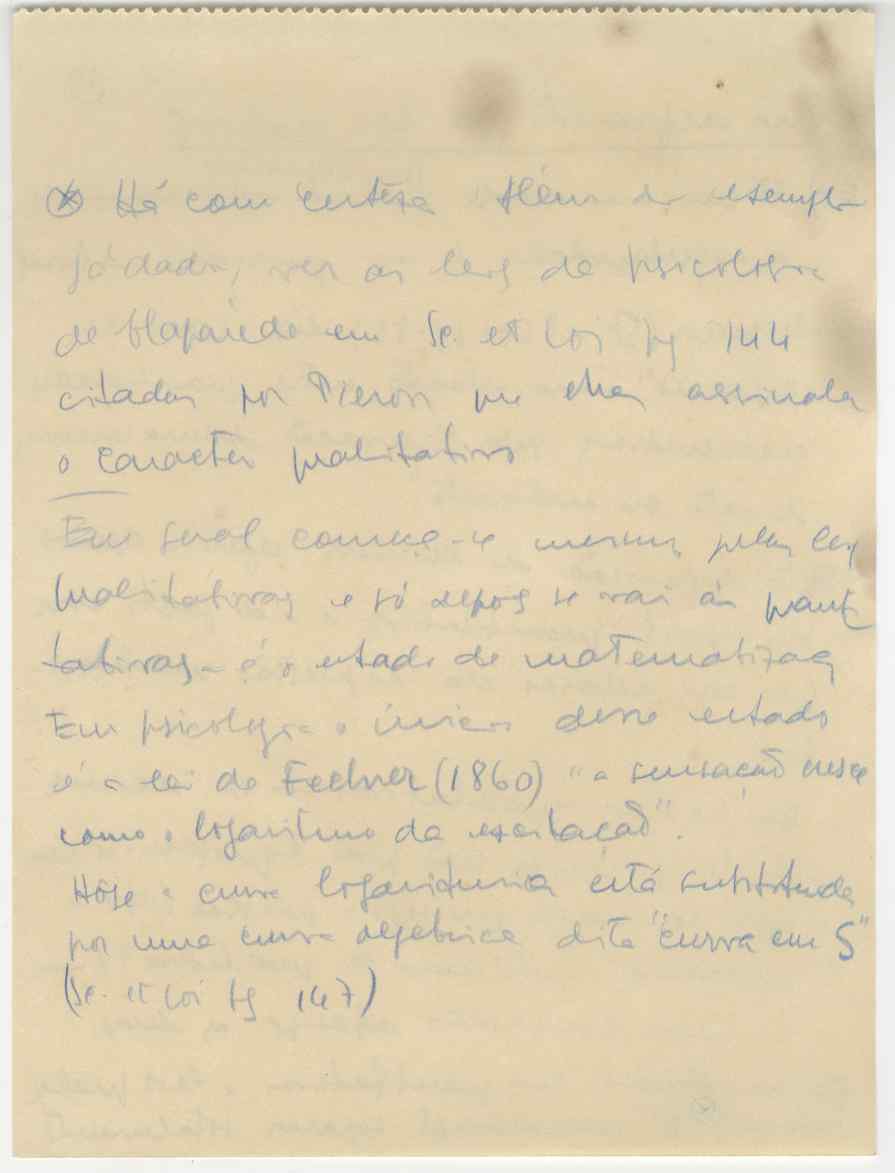 Há com certeza Além do exemplo
já dado, ver as leis de psicologia
de Claparède em Sc. et Loi pg 144
citadas por Pieron que elas assinala
o caracter qualitativo
Em geral começa-se mesmo pelas leis
qualitativas e só depois se vai às quanti
tativas - é o estado de matematizaç
Em psicologia o início desse estado
é a lei de Fechner (1860) "a sensação cresce
como o logaritmo da excitação".
Hoje a curva logaritmica está substituida
por uma curva algebrica dita "curva em S"
(Sc. et Loi pg 147)